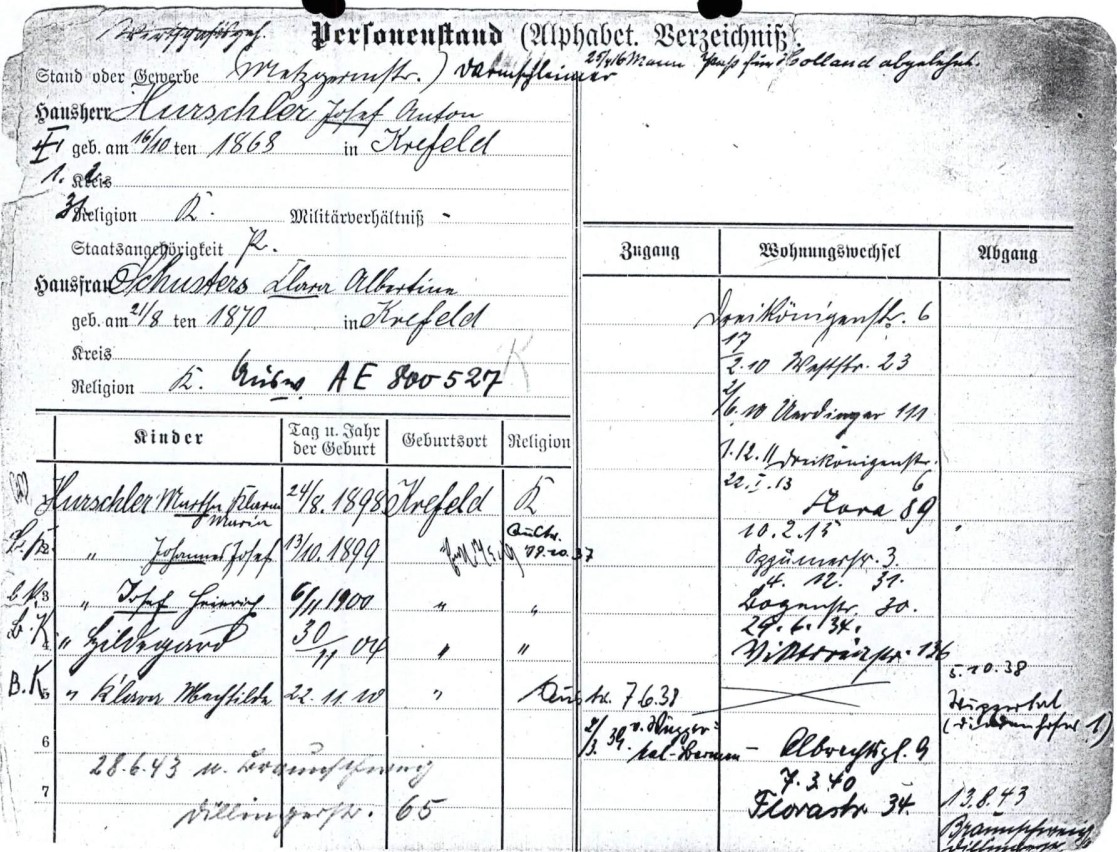 Personenstand (Alphabet. Verzeichniß).
Stand oder Gewerbe Metzgermstr.) Darmschleimer
25/4 16 Mann Paß für Holland abgelehnt.
Hausherr Hurschler Josef Anton
geb. am 16/10 ten 1868 in Krefeld
Kreis
Religion K. Militärverhältniß -
Staatsangehörigkeit P.
Hausfrau Schusters Clara Albertine
geb. am 21/8 ten 1870 in Krefeld
Kreis
Religion K. Ausw. AE 800527
Kinder Tag u. Jahr der Geburt Geburtsort Religion
Hurschler Martha Klara Maria 24/8. 1898 Krefeld K
" Johannes Josef 13/10. 1899
Austr. 19.10.37
3 " Josef Heinrich 6/11 1900 " "
4 " Hildegard 30/11 04 " "
B.K. 5 " Klara Mechtilde 22.11.10 "
Austr. 7 6.38
6
28.6.43 n. Braunschweig
7
Dillingerstr. 65
Zugang Wohnungswechsel Abgang
Dreikönigenstr. 6
17/2.10 Weststr. 23
2/6.10 Uerdinger 111
1.12.11 Dreikönigenstr. 6
22.I.13
Flora 89
10.2.15
3.
4. 12. 31.
Bogenstr. 30.
29.6.34.
Viktoriastr. 136
5.10.38
Wuppertal
2/3. 39. v. Wuppertal-Barmen - Albrechtspl. 9
7.3.40
Florastr. 34.
13.8.43
Braunschweig